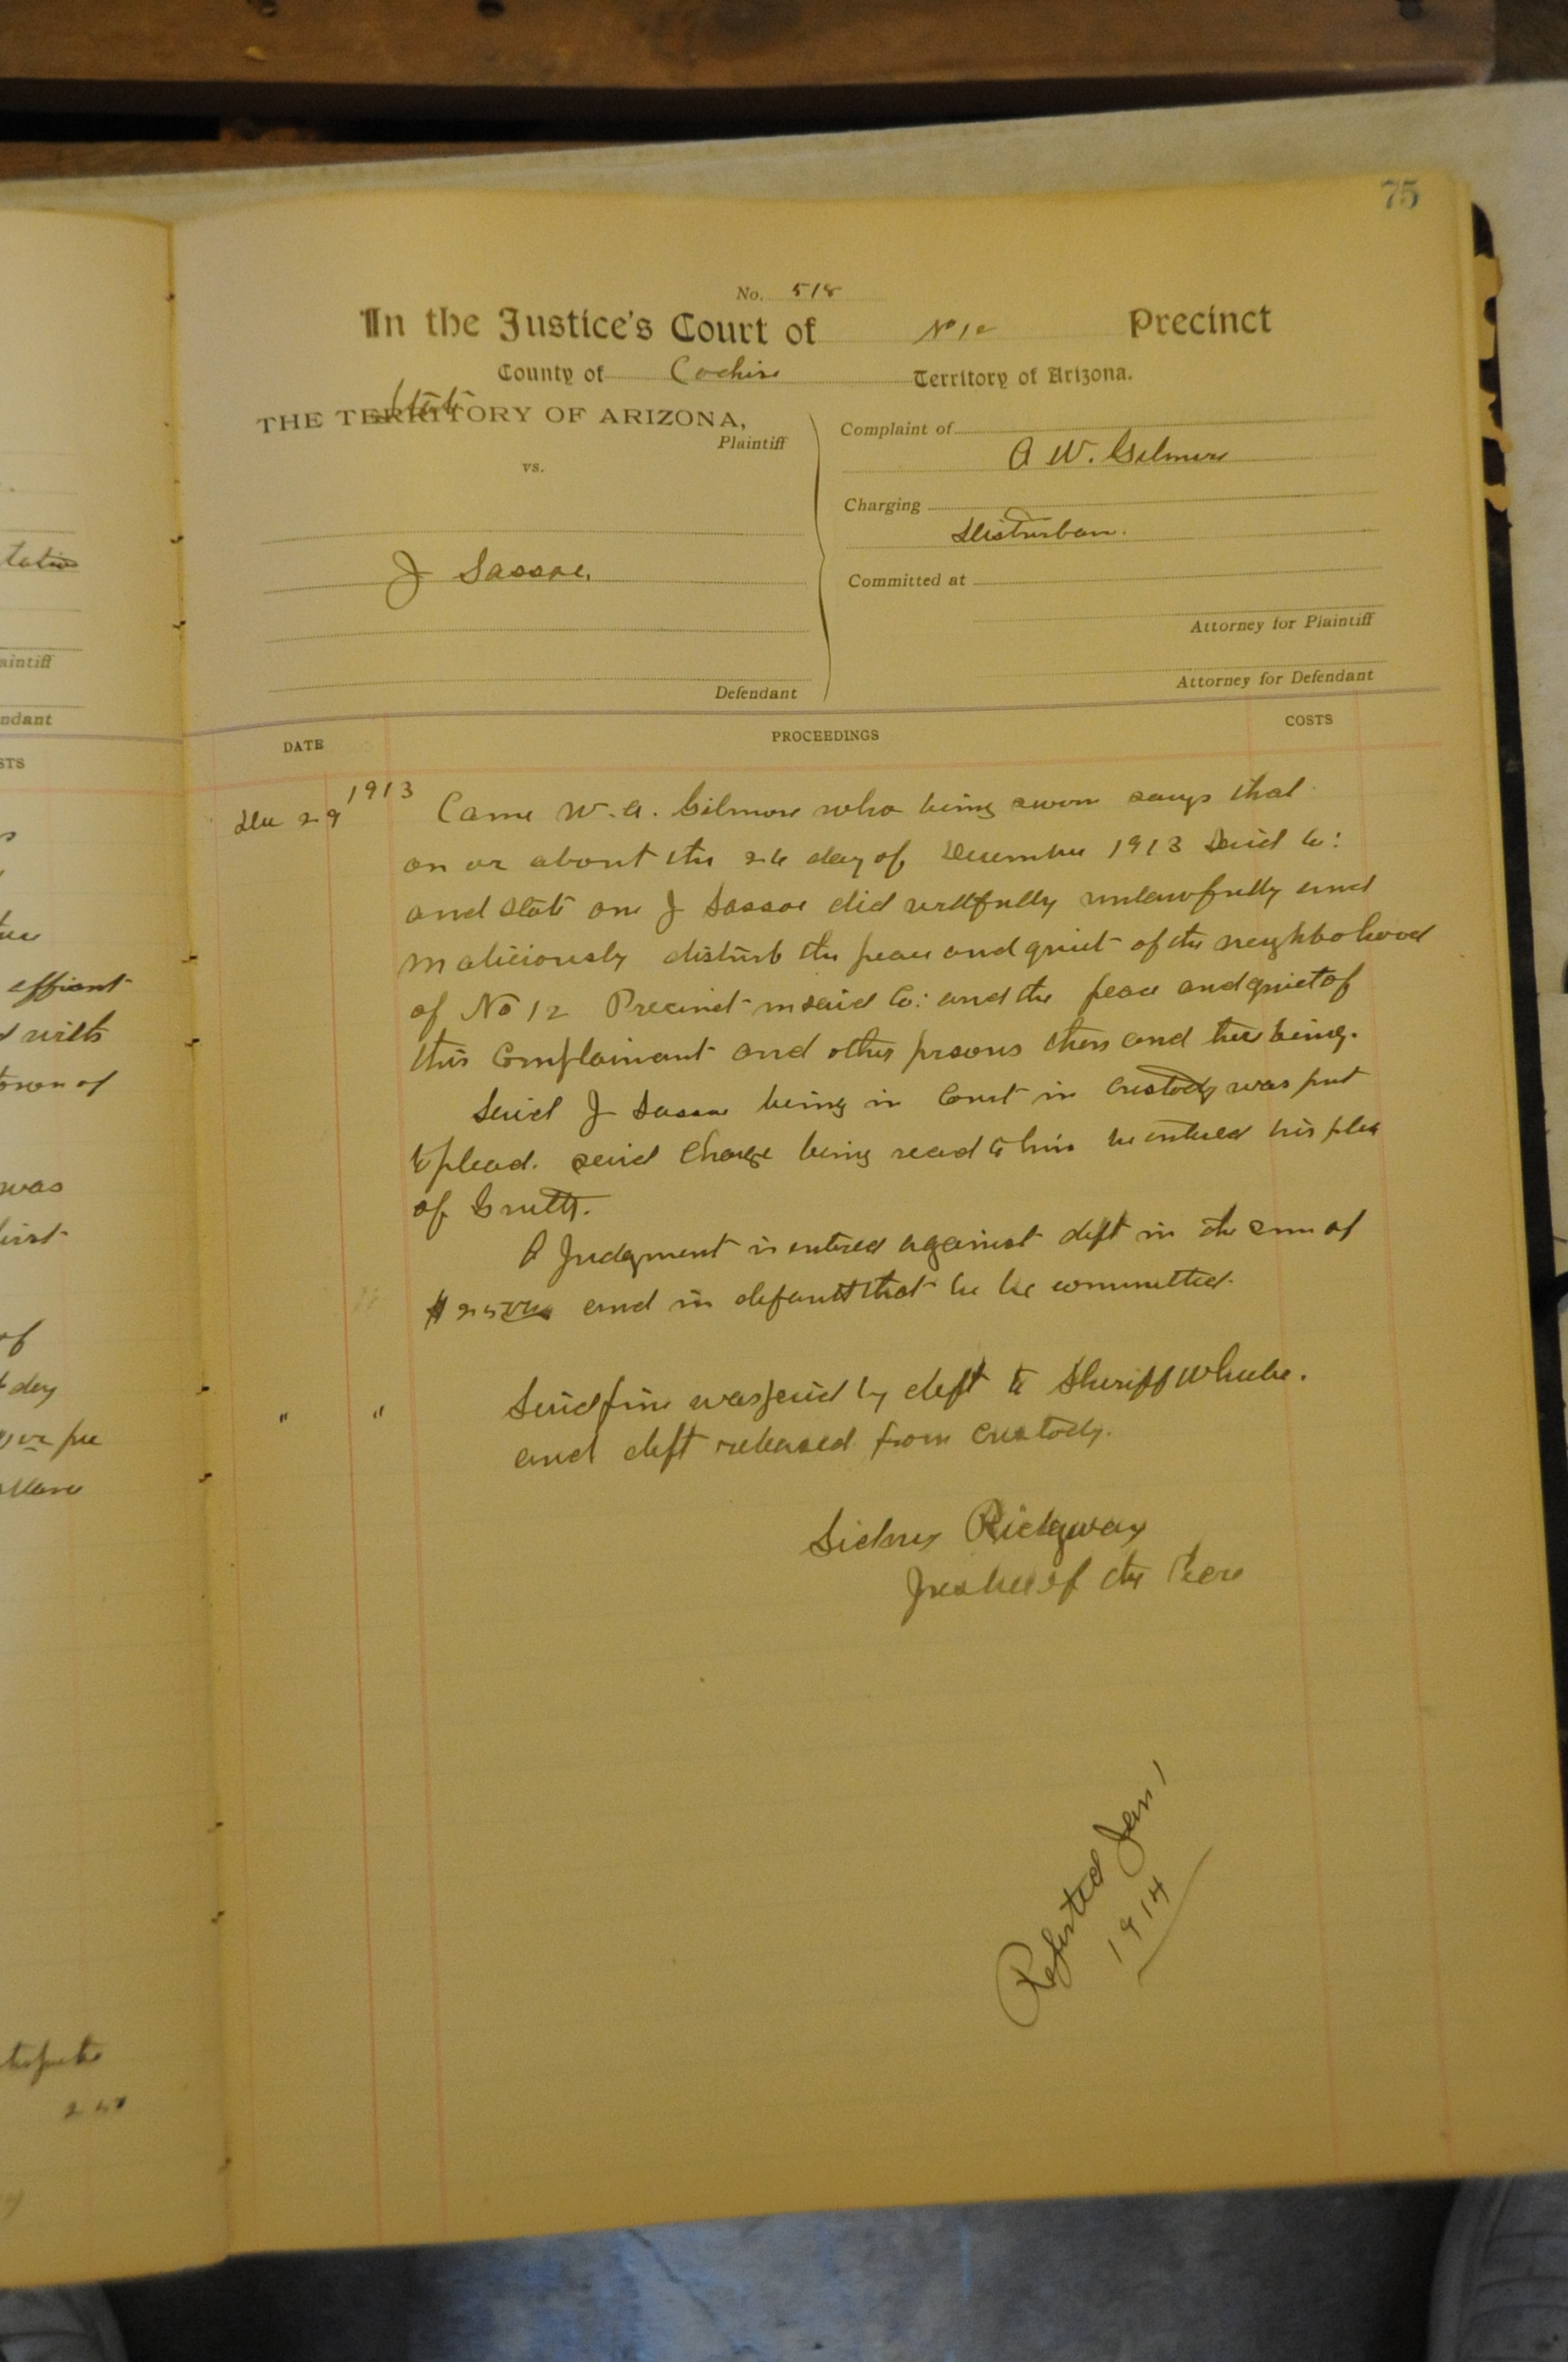 75
No. 518
In the Justice's Court of No 12 Precinct
County of Cochise Territory of Arizona.
State
THE TERRITORY OF ARIZONA,
Plaintiff
vs.
J Sassoe.
Defendant
Complaint of
A W. Gilmore
Charging
Disturban.
Committed at
Attorney for Plaintiff
Attorney for Defendant
DATE PROCEEDINGS COSTS
Dec 29 1913 Came W. A. Gilmore who being sworn says that
on or about the 26 day of December 1913 Said Co:
and State one J Sassoe did willfully unlawfully and
maliciously disturb the peace and quiet of the neighbohood
of No 12 Precinct in said Co: and the peace and quiet of
this Complainant and other prsons then and there being.
Said J Sassoe being in Court in Custody was put
to plead. said Charge being read to him he entered his plea
of Guilty.
A Judgment is entered against deft in the sum of
and in default that he be committed.
" " Said fine was paid by deft to Sheriff Wheeler.
and deft released from Custody.
Sidney Ridgway
Justice of the Peace
Reported Jan 1
1914
tation
aintiff
ndant
STS
affiant
d with
was
first
of
day
fee